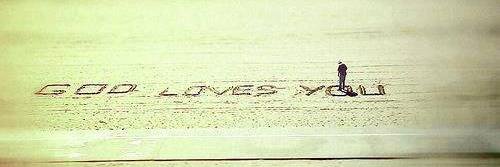 GOD LOVES YOU